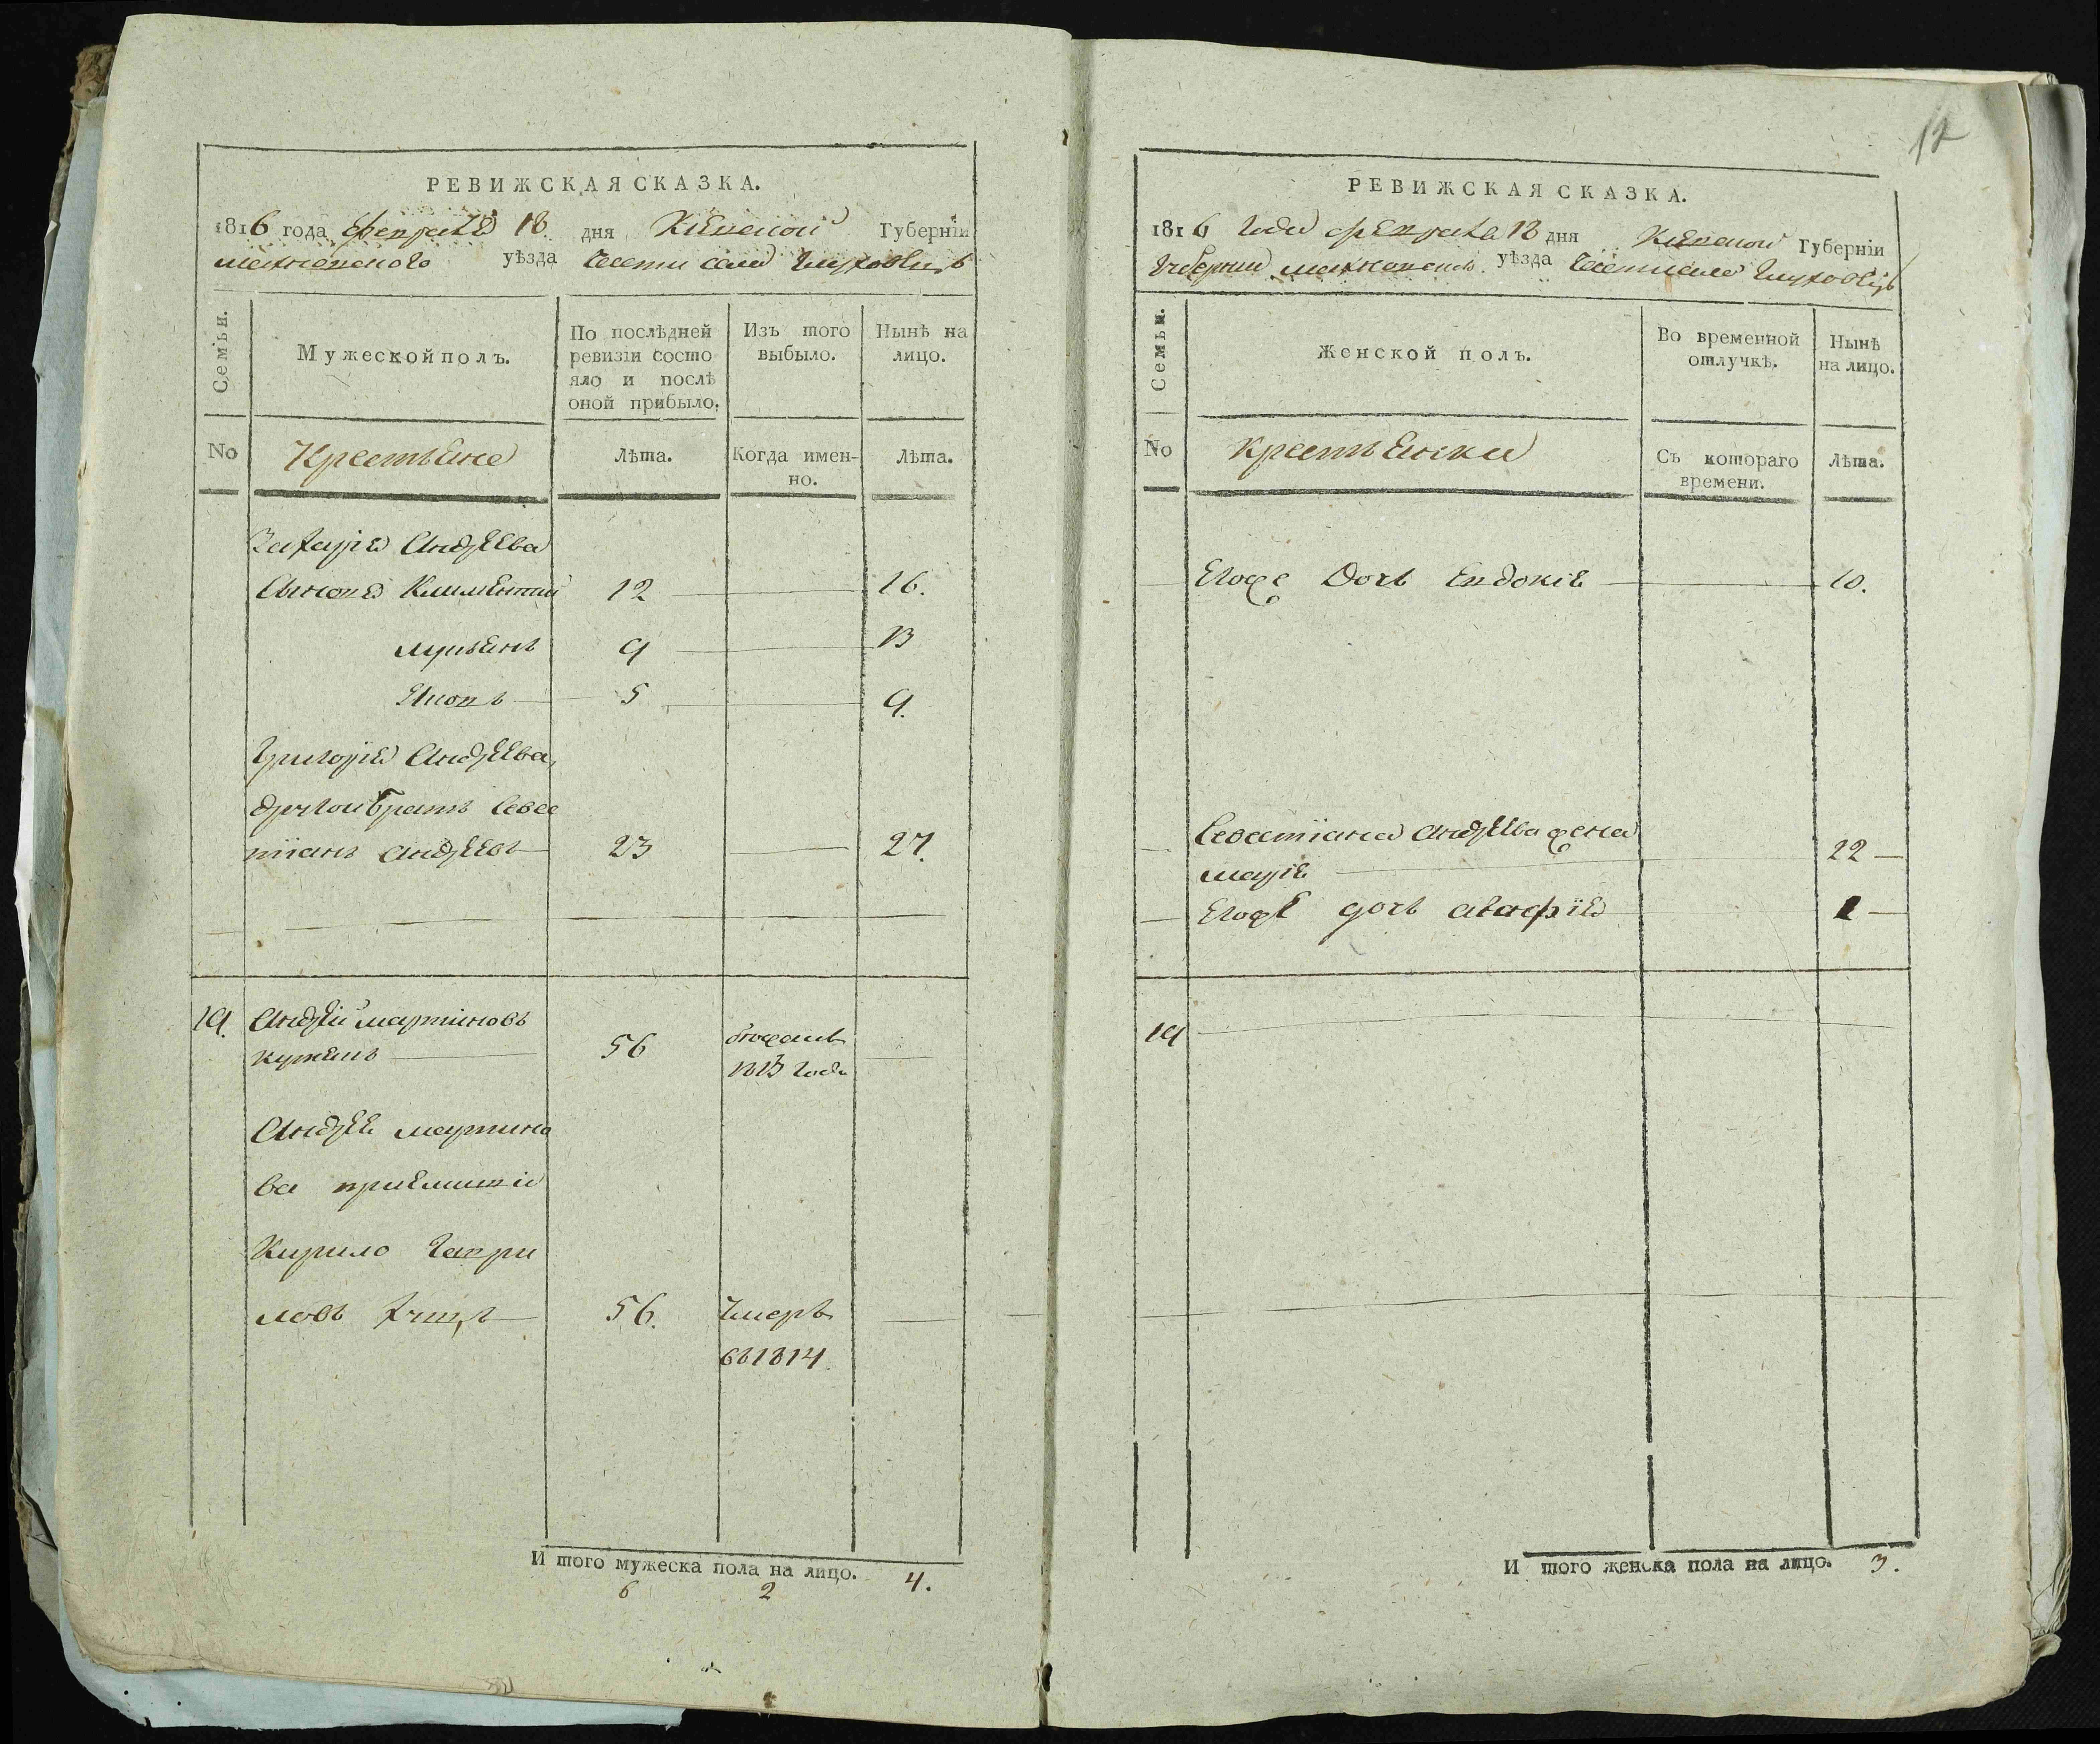 РЕВИЖСКАЯ СКАЗКА.
1816 года февраля 18 дня Кіевской Губерніи
махновского уѣзда Части села Глуховецъ
Семьи.
Мужеской полъ.
По послѣдней
ревизіи состо
яло и послѣ
оной прибыло.
Изъ того
выбыло.
Нынѣ на
лицо.
No
Крестьяне
Лѣта.
Когда имен-
но.
Лѣта.
Захарія Андрѣева
Климентий 12 16.
лукьянъ 9 13
Яковъ 5 9.
Григорія Андрѣева,
другой братъ Севас
тіянъ Андрѣевъ 23 27.
19. Андрѣй мартиновъ
56
1813 года
Андрѣя мартино
ва
Кирило Гаври
ловъ 56. Умеръ
въ 1814
И того мужеска пола на лицо. 4.
6 2
12
РЕВИЖСКАЯ СКАЗКА.
1816 Года февраля 18 дня Кіевской Губерніи
Губернии махновскаго уѣзда Части села Глуховецъ
Семьи.
Женской полъ.
Во временной
отлучкѣ.
Нынѣ
на лицо.
No
крестьянки
Съ котораго
времени.
Лѣта.
Егоже Дочь Евдокія 10.
Севастіяна андрѣева жена
марія 22
Егожъ дочь агафія 1
19
И того женска пола на лицо. 3.